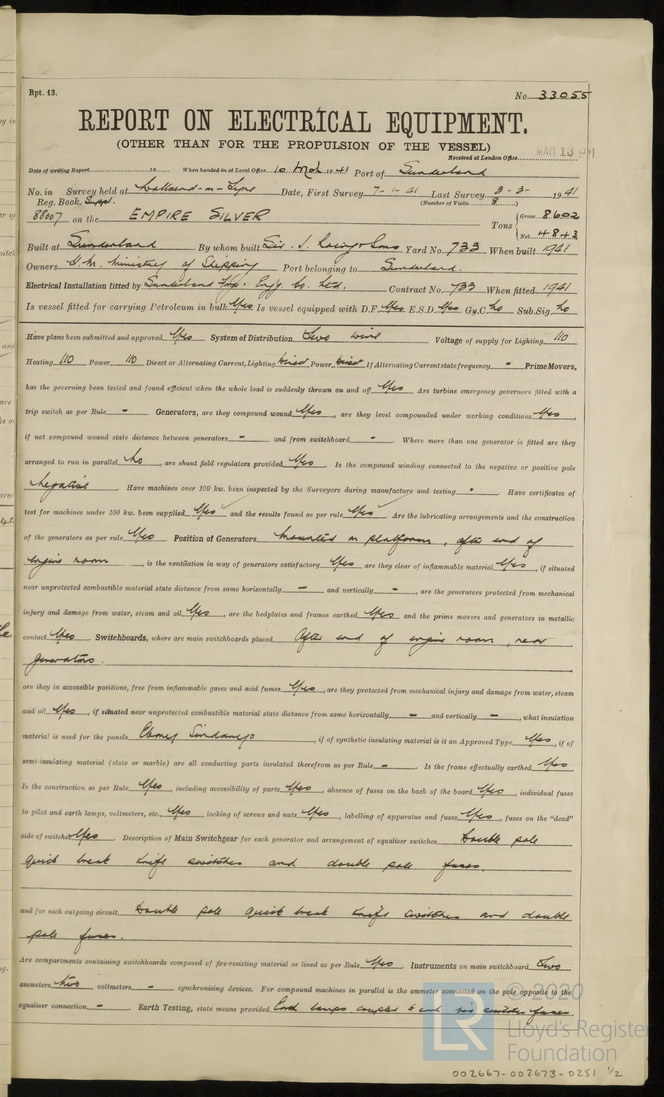 Rpt. 13.
No. 33055
REPORT ON ELECTRICAL EQUIPMENT.
(OTHER THAN FOR THE PROPULSION OF THE VESSEL)
Received at London Office MAR 13 1941
Date of writing Report 19 When handed in at Local Office 10 Mch 1941 Port of Sunderland
No. in Survey held at Wallsend-on-Tyne Date, First Survey 7-1-41 Last Survey 3-3- 1941
Reg. Book. Suppl. (Number of Visits 8)
88007 on the EMPIRE SILVER Tons { Gross 8602
Net 4843
Built at Sunderland By whom built Sir J. Laing & Sons Yard No. 733 When built 1941
Owners H.M. Ministry of Shipping Port belonging to Sunderland.
Electrical Installation fitted by Sunderland Engg Co. Ltd. Contract No. 733 When fitted 1941
Is vessel fitted for carrying Petroleum in bulk Yes Is vessel equipped with D.F. Yes E.S.D. Yes Gy.C. No Sub.Sig. No
Have plans been submitted and approved Yes System of Distribution Two wire Voltage of supply for Lighting 110
Heating 110 Power 110 Direct or Alternating Current, Lighting Direct Power Direct If Alternating Current state frequency - Prime Movers,
has the governing been tested and found efficient when the whole load is suddenly thrown on and off Yes Are turbine emergency governors fitted with a
trip switch as per Rule - Generators, are they compound wound Yes, are they level compounded under working conditions Yes,
if not compound wound state distance between generators - and from switchboard - Where more than one generator is fitted are they
arranged to run in parallel No, are shunt field regulators provided Yes Is the compound winding connected to the negative or positive pole
Negative Have machines over 100 kw. been inspected by the Surveyors during manufacture and testing - Have certificates of
test for machines under 100 kw. been supplied Yes and the results found as per rule Yes Are the lubricating arrangements and the construction
of the generators as per rule Yes Position of Generators Mounted on platform, after end of
engine room, is the ventilation in way of generators satisfactory Yes are they clear of inflammable material Yes, if situated
near unprotected combustible material state distance from same horizontally - and vertically -, are the generators protected from mechanical
injury and damage from water, steam and oil Yes, are the bedplates and frames earthed Yes and the prime movers and generators in metallic
contact Yes Switchboards, where are main switchboards placed After end of engine room, near
generators.
are they in accessible positions, free from inflammable gases and acid fumes Yes, are they protected from mechanical injury and damage from water, steam
and oil Yes, if situated near unprotected combustible material state distance from same horizontally - and vertically -, what insulation
material is used for the panels Ebony Sindanyo, if of synthetic insulating material is it an Approved Type Yes, if of
semi-insulating material (slate or marble) are all conducting parts insulated therefrom as per Rule - Is the frame effectually earthed Yes
Is the construction as per Rule Yes, including accessibility of parts Yes, absence of fuses on the back of the board Yes, individual fuses
to pilot and earth lamps, voltmeters, etc. Yes, locking of screws and nuts Yes, labelling of apparatus and fuses Yes, fuses on the "dead"
side of switches Yes Description of Main Switchgear for each generator and arrangement of equaliser switches Double pole
quick break knife switches and double pole fuses.
and for each outgoing circuit Double pole quick break knife switches and double
pole fuses.
Are compartments containing switchboards composed of fire-resisting material or lined as per Rule Yes Instruments on main switchboard Two
ammeters two voltmeters - synchronising devices. For compound machines in parallel is the ammeter connected on the pole opposite to the
equaliser connection - Earth Testing, state means provided Earth lamps coupled to earth via switches fuses.
© 2020
Lloyd's Register
Foundation
LR
002667-002673-0251 1/2